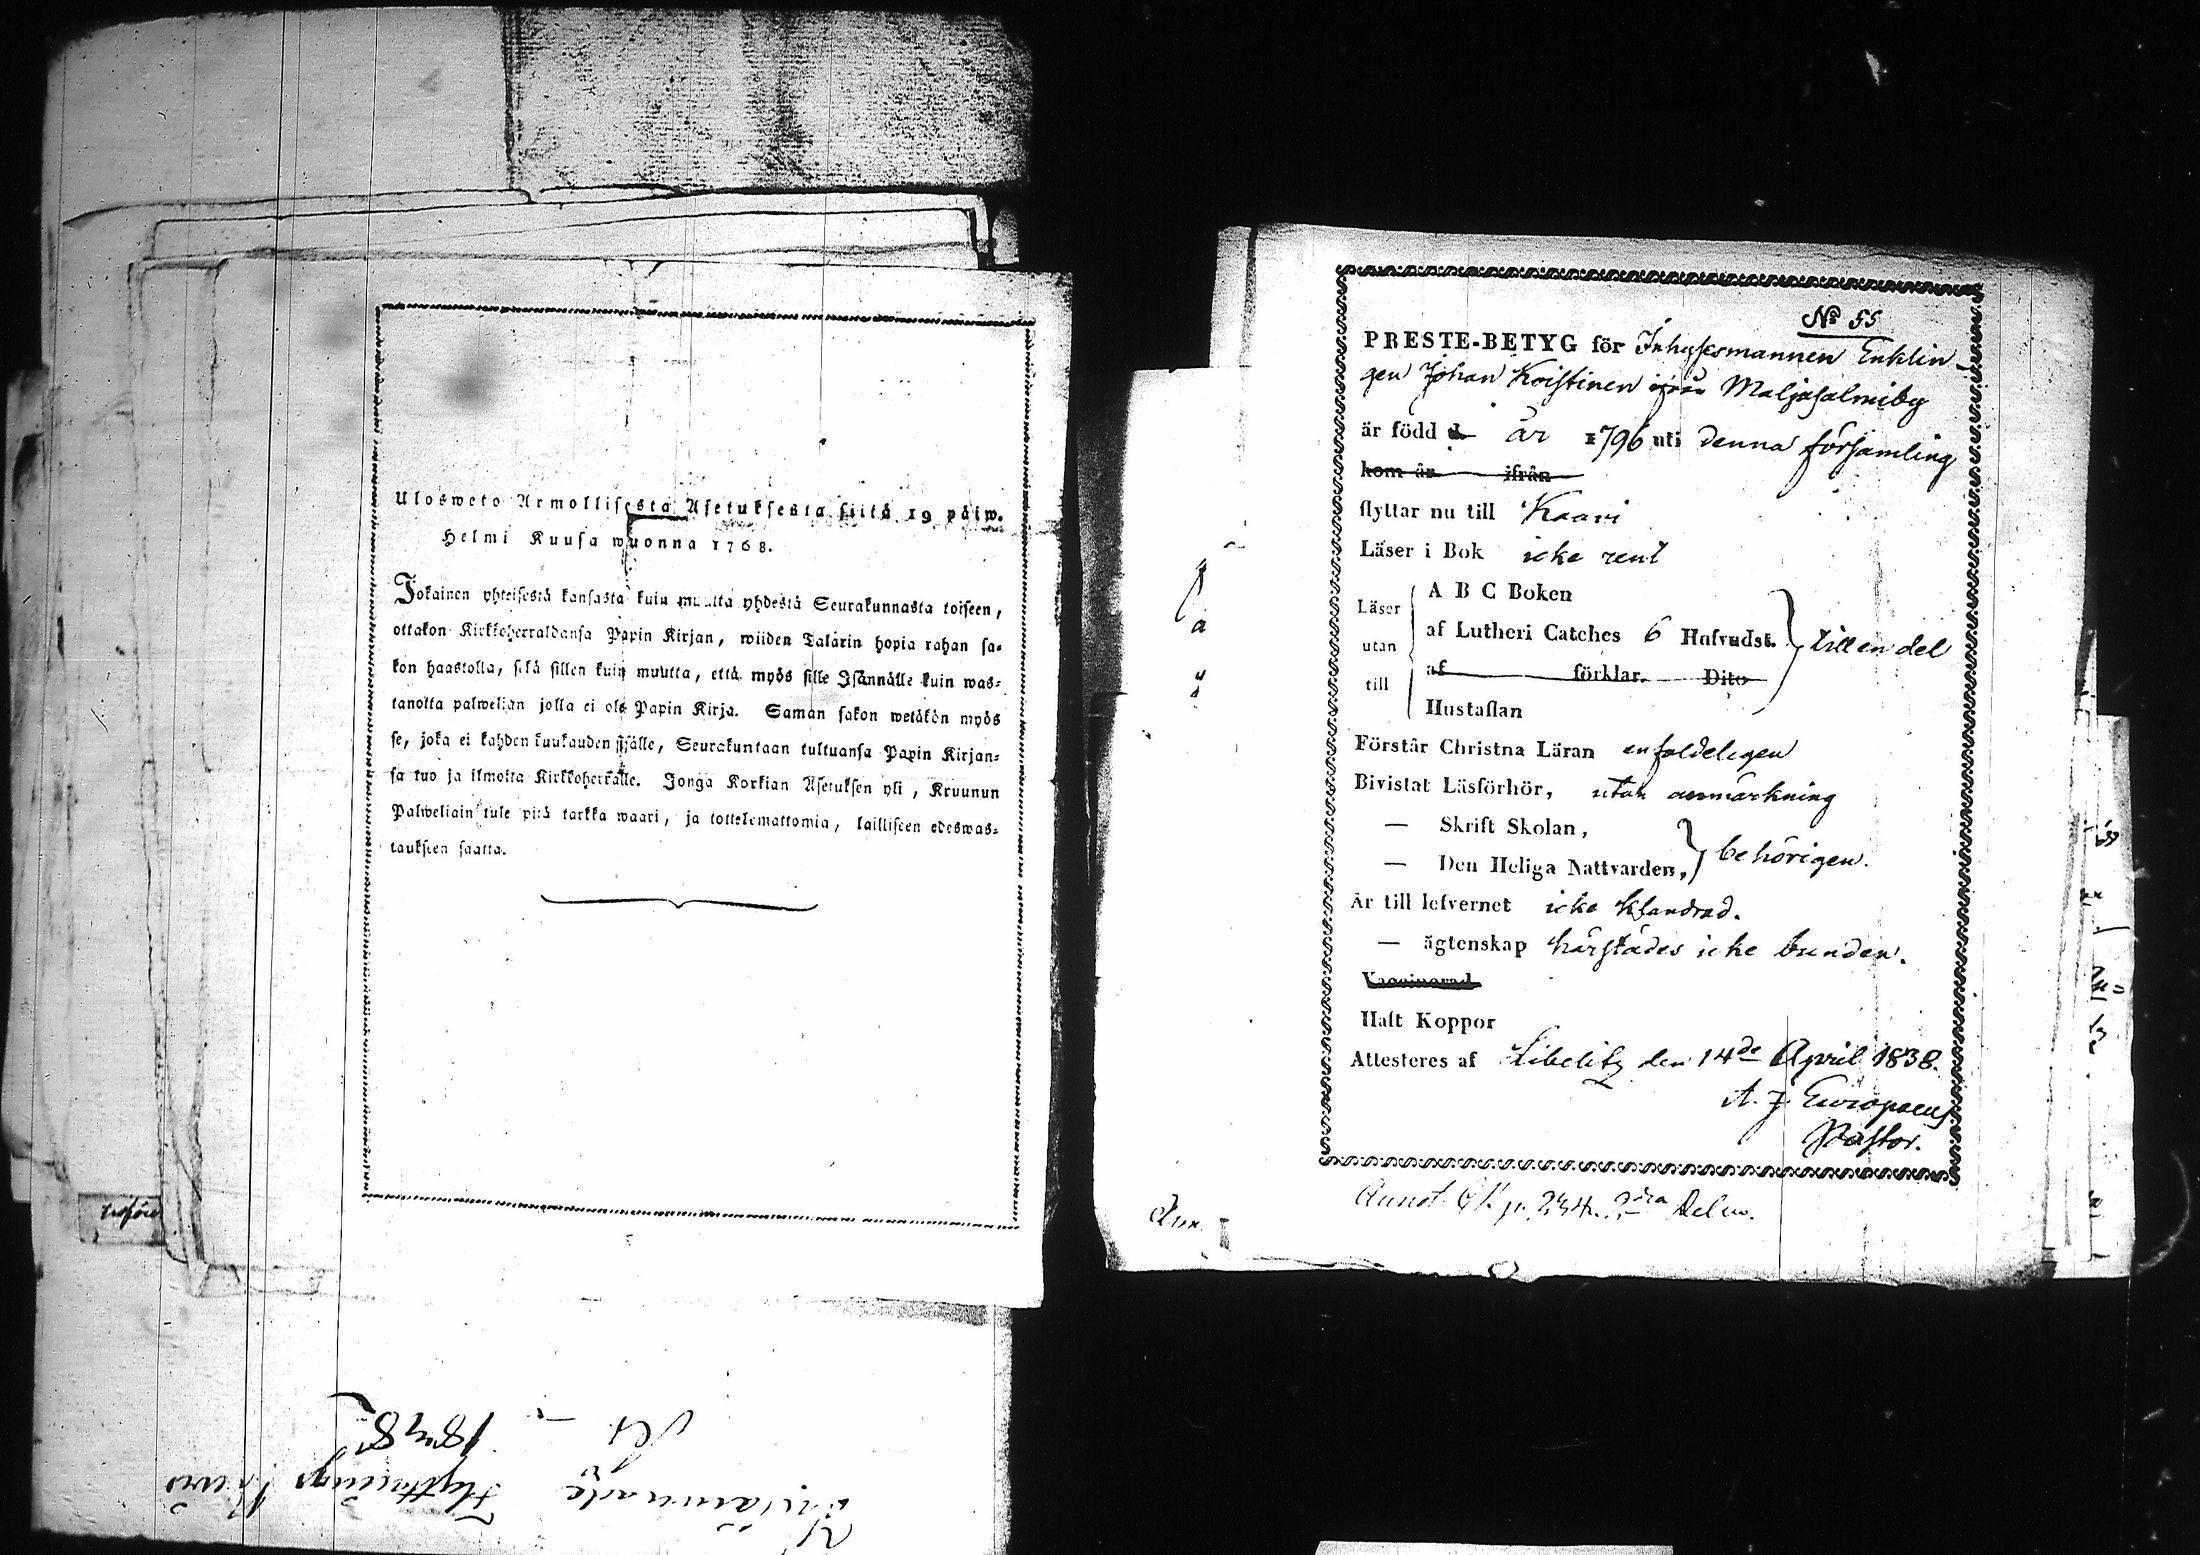 Ulosweto Armollisesta Asetuksesta siitä 19 päiw.
Helmi Kuusa wuonna 1768.
Jokainen yhteisestä kansasta kuin muutta yhdestä Seurakunnasta toiseen,
ottakon Kirkkoherraldansa Papin Kirjan, wiiden Talarin hopia rahan sa-
kon haastolla, sekä sillen kuin muutta, että myös sille Isännälle kuin was-
tanotta palwelian jolla ei ole Papin Kirja. Saman sakon wetäkön myös
se, joka ei kahden kuukauden sisälle, Seurakuntaan tultuansa Papin Kirjan-
sa tuo ja ilmoita Kirkkoherralle. Jonga Korkian Asetuksen yli, Kruunun
Palweliain tule pitä tarkka waari, ja tottelemattomia, lailliseen edeswas-
taukseen saatta.
Flyttnings
1838
No 55
PRESTE-BETYG för Inhysesmannen Enklin-
gen Johan Koistinen ifrån Maljasalmiby
är född d. år 1796 uti denna församling
kom år ifrån
flyttar nu till Kaavi
Läser i Bok icke rent
Läser utan till
A B C Boken
af Lutheri Catches 6 Hufvudst. till en del
af förklar. Dito
Hustaflan
Förstår Christna Läran enfaldeligen
Bivistat Läsförhör, utan anmärkning
— Skrift Skolan,
— Den Heliga Nattvarden, behörigen.
Är till lefvernet icke klandrad.
— ägtenskap härstädes icke bunden.
Vaccinerad
Haft Koppor
Attesteres af Libelitz den 14de April 1838.
A. J. Europaeus
Pastor.
Annot. p. 234. Delen.
Ann.